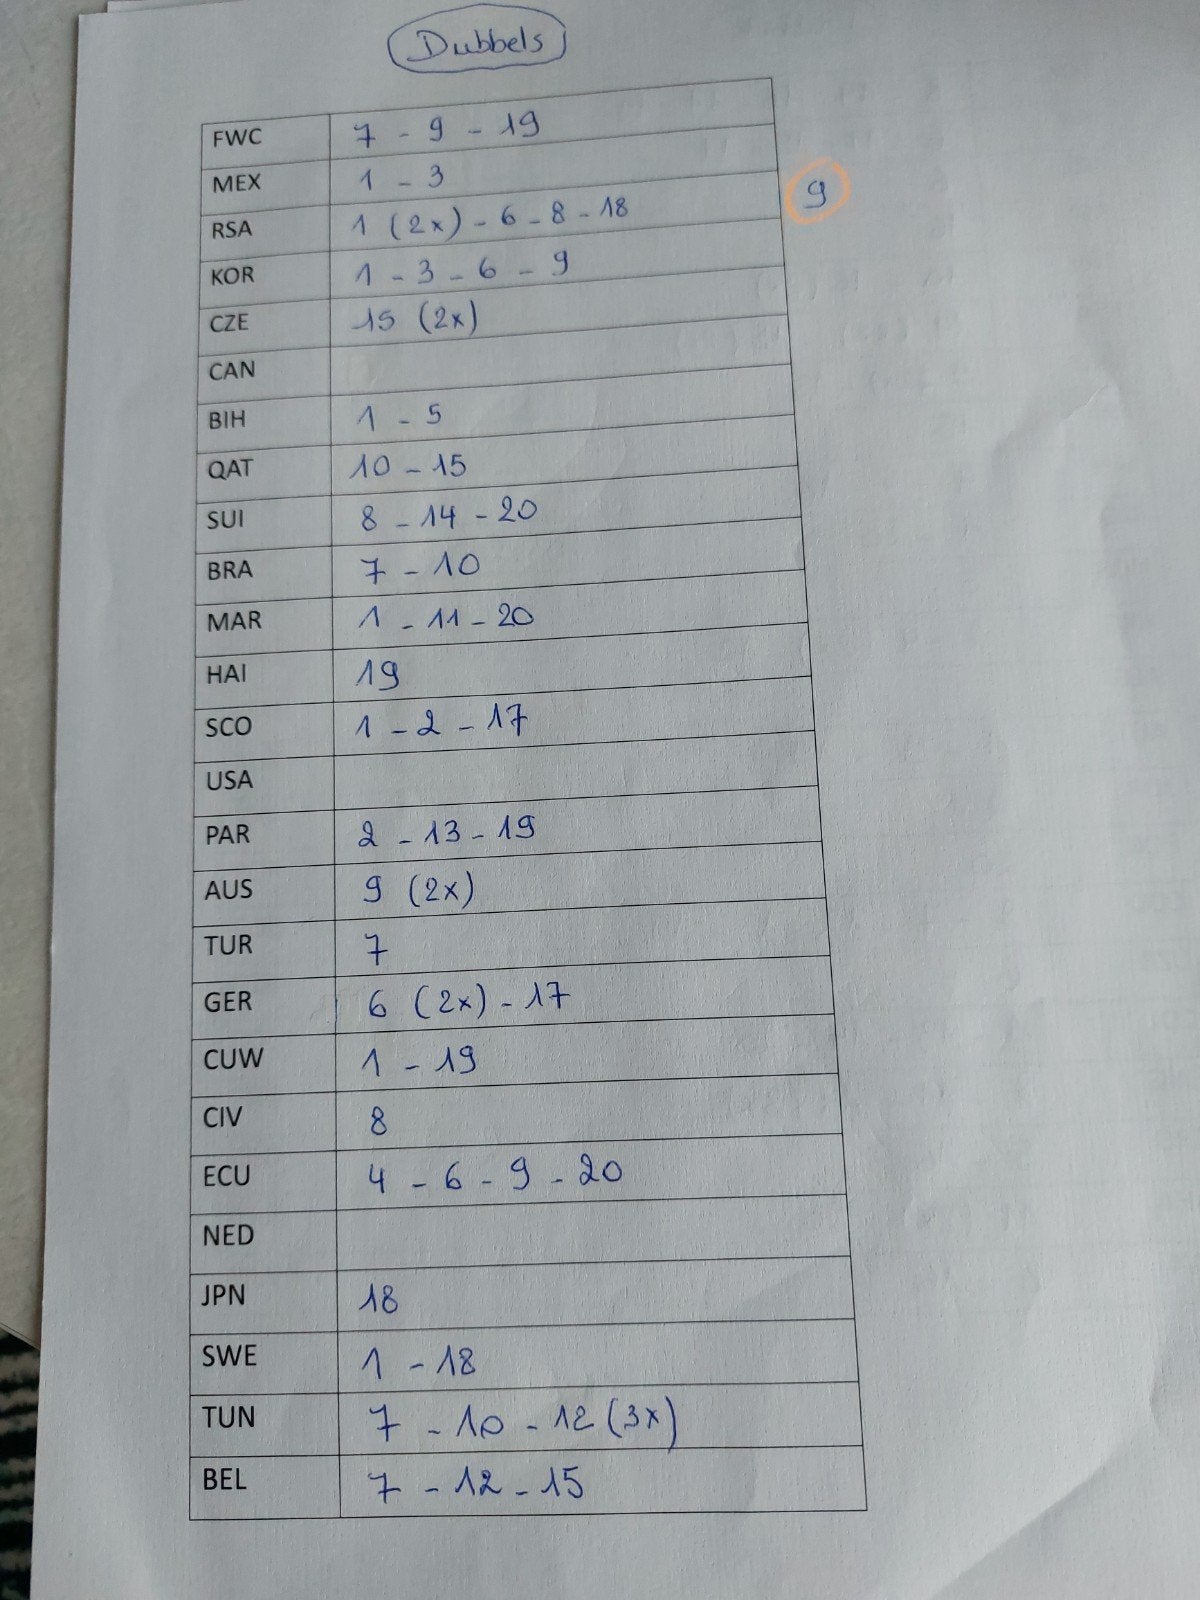 Dubbels
FWC 7 - 9 - 19
MEX 1 - 3
9
RSA 1 (2x) - 6 - 8 - 18
KOR 1 - 3 - 6 - 9
CZE 15 (2x)
CAN
BIH 1 - 5
QAT 10 - 15
SUI 8 - 14 - 20
BRA 7 - 10
MAR 1 - 11 - 20
HAI 19
SCO 1 - 2 - 17
USA
PAR 2 - 13 - 19
AUS 9 (2x)
TUR 7
GER 6 (2x) - 17
CUW 1 - 19
CIV 8
ECU 4 - 6 - 9 - 20
NED
JPN 18
SWE 1 - 18
TUN 7 - 10 - 12 (3x)
BEL 7 - 12 - 15